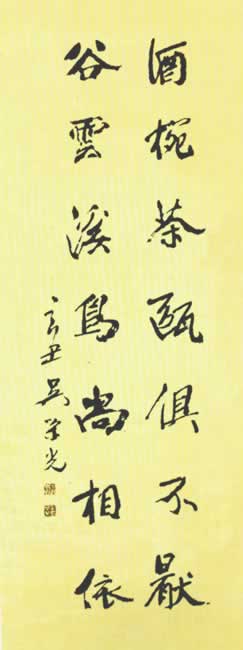 酒椀茶甌俱不猒
谷雲溪鳥尚相依
辛丑吳榮光